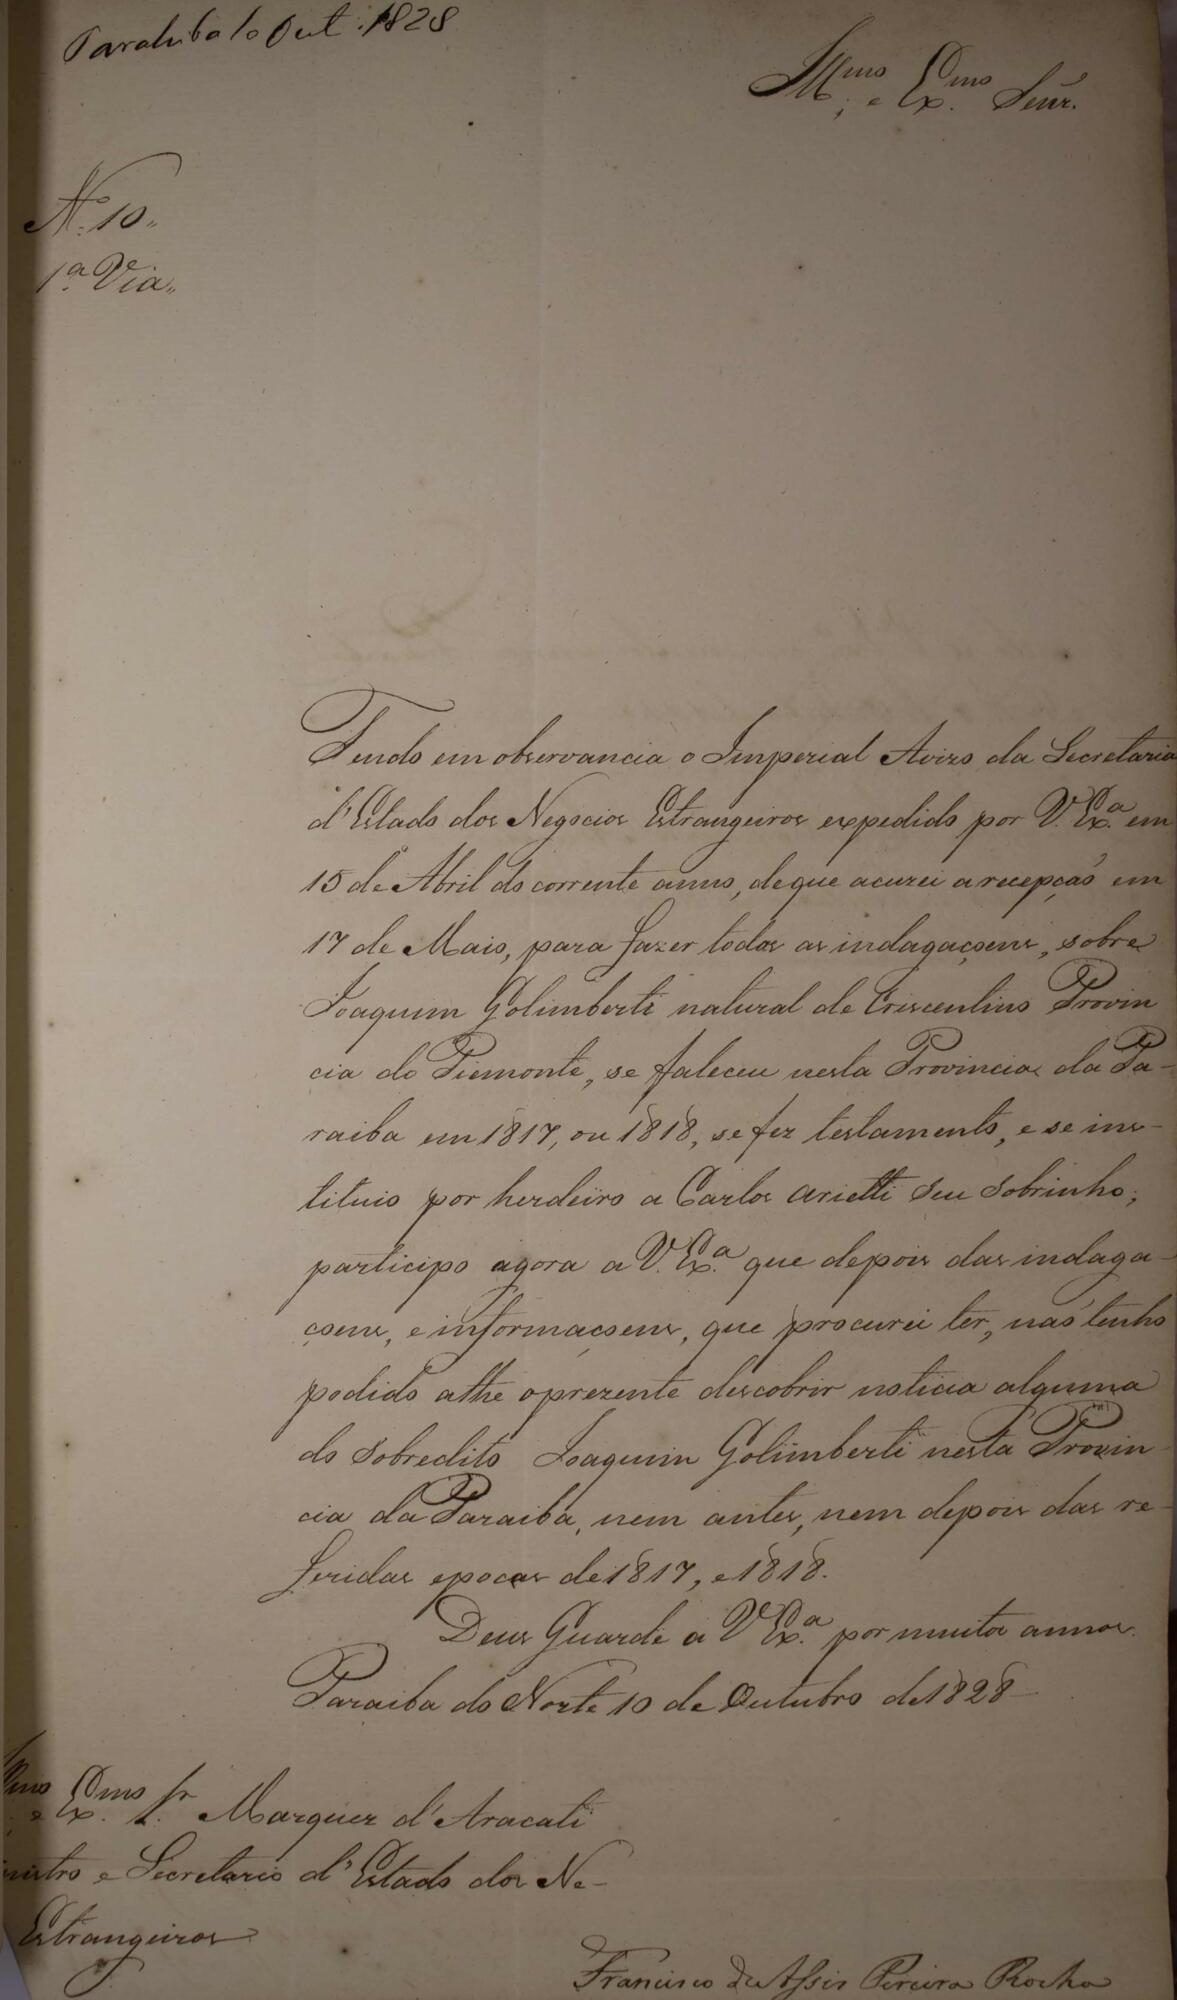 Parahiba 10 Out. 1828
Illmo. e Exmo. Senr.
N. 10,,
1.ª Via,,
Tendo em observancia o Imperial Avizo da Secretaria
d'Estado dos Negocios Estrangeiros expedido por V. Ex.ª em
15 de Abril do corrente anno, de que acuzei a recepçaõ em
17 de Maio, para fazer todas as indagaçoens, sobre
Joaquim Golimberti natural de Criscentino Provin
cia do Piemonte, se faleceu nesta Provincia da Pa-
raiba em 1817, ou 1818, se fez testamento, e se ins-
tituio por herdeiro a Carlos Arietti seu sobrinho;
participo agora a V. Ex.ª que depois das indaga-
çoens, e informaçoens, que procurei ter, naõ tenho
podido athe o prezente descobrir noticia alguma
do sobredito Joaquim Golimberti nesta Provin
cia da Paraiba, nem antes, nem depois das re-
feridas epocas de 1817, e 1818.
Deus Guarde a V Ex.ª por muitos annos.
Paraiba do Norte 10 de Outubro de 1828
e Exmo. Sr. Marquez d'Aracati
nistro e Secretario d'Estado dos Ne-
Estrangeiros
Francisco de Assis Pereira Rocha